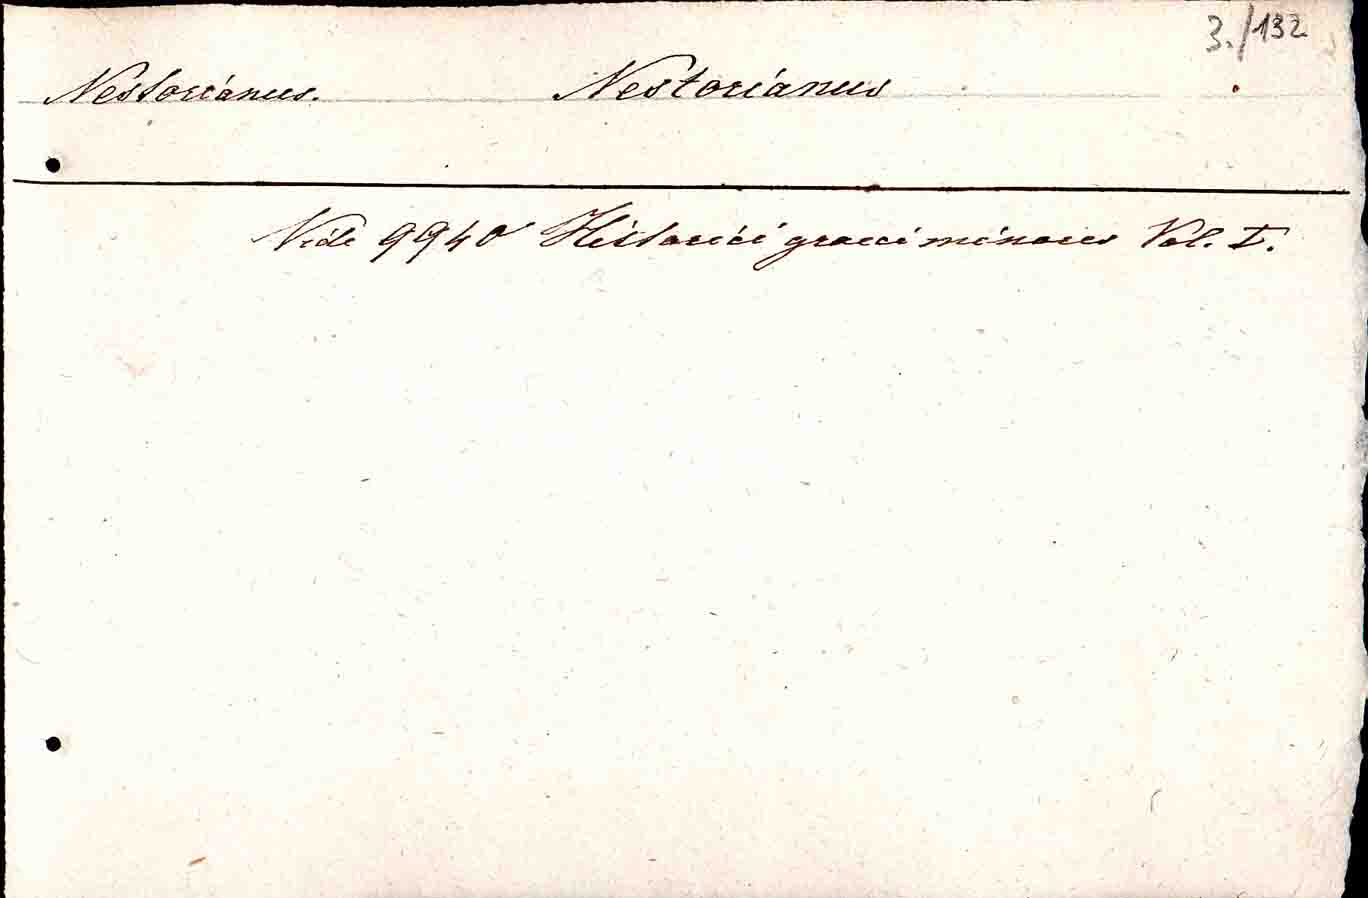 3./132
Nestorianus. Nestorianus
Vide 9940 Historici graeci minores Vol. I.